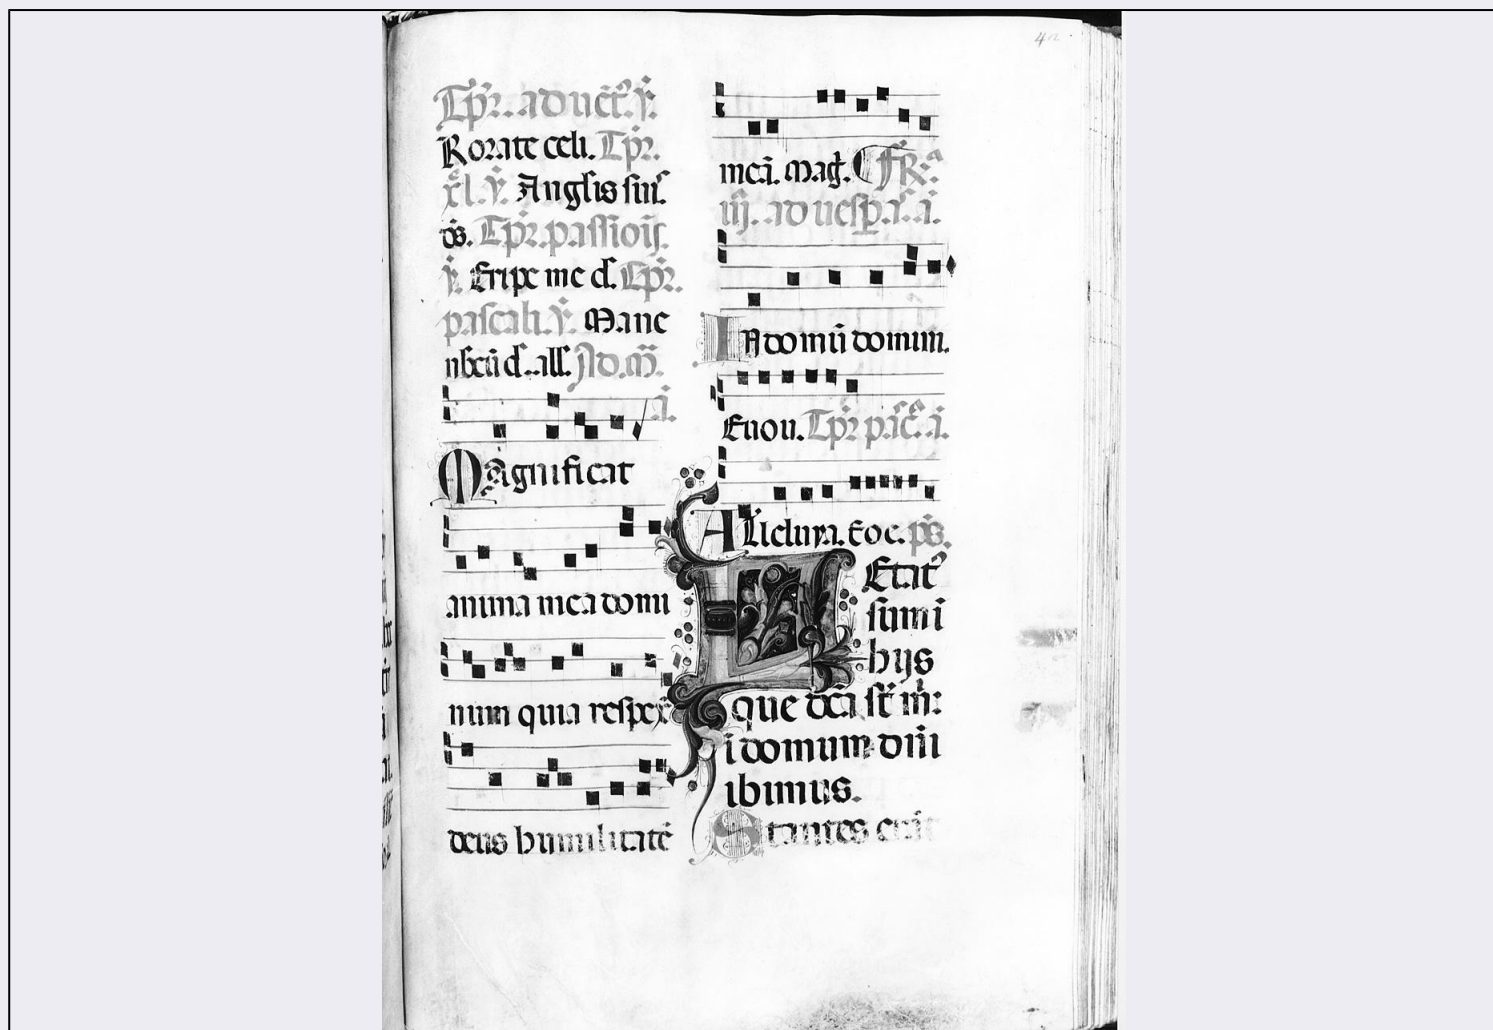 Rorate celi. Tpr.
xl. v. Angelis suis
ds. Tpr. passiois
v. Eripe me d. Tpr.
pascali. v. Mane
nbcu d. all. Ad. m.
a.
Magnificat
anima mea domi
num quia respex
deus humilitate
mea. mag.
iij. ad vespas. a.
In domu domini.
Euou. Tpr pasc. a.
Alleluya. Eoe. ps.
Letat
sum i
hijs
que dca st m:
i domum dni
ibimus.
Stantes erat
40